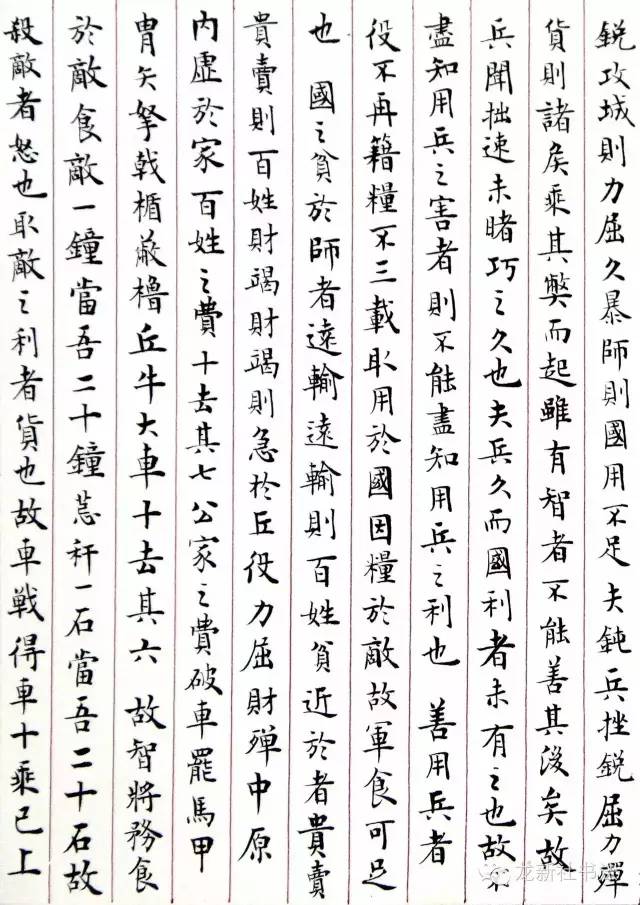 鋭攻城則力屈久暴師則國用不足夫鈍兵挫鋭屈力殫
貨則諸矦乘其獘而起雖有智者不能善其後矣故
兵聞拙速未睹巧之久也夫兵久而國利者未有之也故不
盡知用兵之害者則不能盡知用兵之利也 善用兵者
役不再籍糧不三載取用於國因糧於敵故軍食可足
也 國之貧於師者遠輸遠輸則百姓貧近於者貴賣
貴賣則百姓財竭財竭則急於丘役力屈財殫中原
内虛於家百姓之費十去其七公家之費破車罷馬甲
胄矢拏戟楯蔽櫓丘牛大車十去其六 故智將務食
於敵食敵一鐘當吾二十鐘䓗秆一石當吾二十石故
殺敵者怒也取敵之利者貨也故車戦得車十乘已上
龙新社书